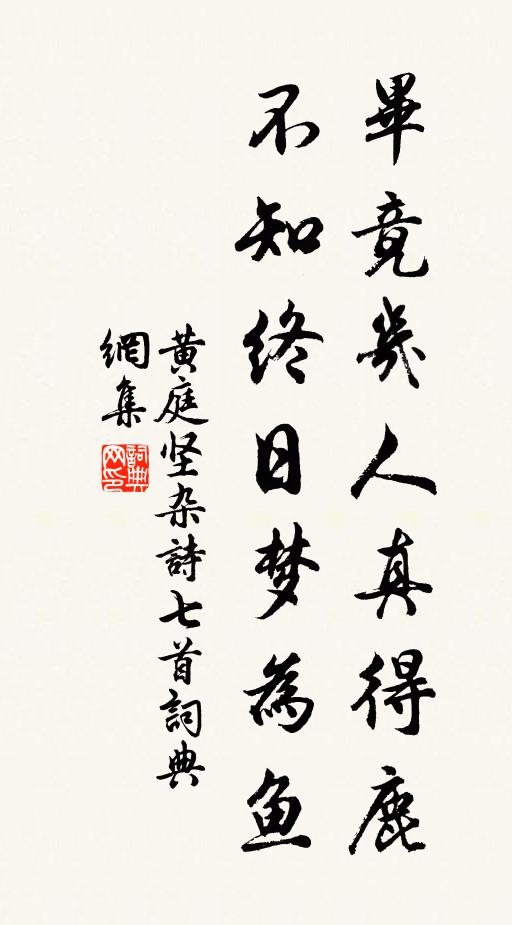 畢竟幾人真得鹿
不知终日梦為鱼
黄庭坚杂詩七首詞典
網集
詞典
网印